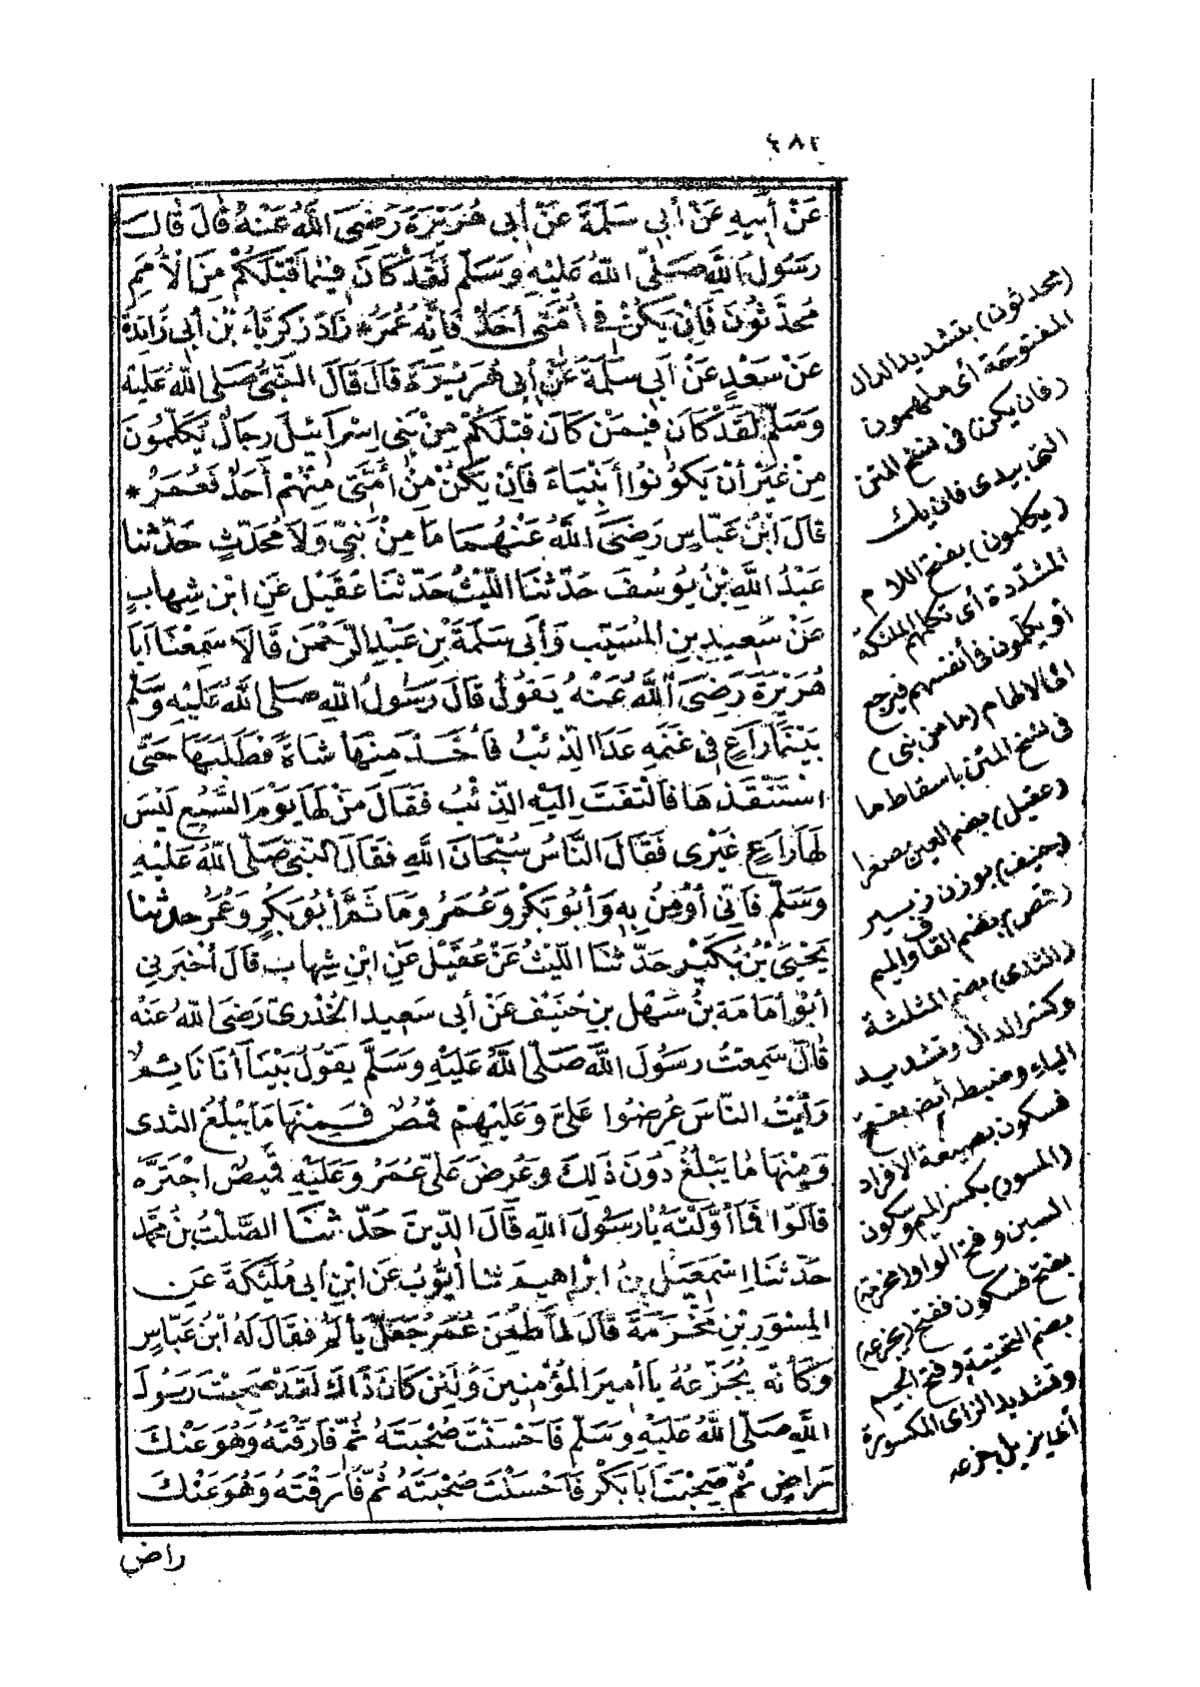 ٤٨٢
عَنْ أَبِيهِ عَنْ أَبِي سَلَمَةَ عَنْ أَبِي هُرَيْرَةَ رَضِيَ اللَّهُ عَنْهُ قَالَ قَالَ
رَسُولُ اللَّهِ صَلَّى اللَّهُ عَلَيْهِ وَسَلَّمَ لَقَدْ كَانَ فِيمَا قَبْلَكُمْ مِنَ الْأُمَمِ
مُحَدَّثُونَ فَإِنْ يَكُنْ فِي أُمَّتِي أَحَدٌ فَإِنَّهُ عُمَرُ * زَادَ زَكَرِيَّاءُ بْنُ أَبِي زَائِدَةَ
عَنْ سَعْدٍ عَنْ أَبِي سَلَمَةَ عَنْ أَبِي هُرَيْرَةَ قَالَ قَالَ النَّبِيُّ صَلَّى اللَّهُ عَلَيْهِ
وَسَلَّمَ لَقَدْ كَانَ فِيمَنْ كَانَ قَبْلَكُمْ مِنْ بَنِي إِسْرَائِيلَ رِجَالٌ يُكَلَّمُونَ
مِنْ غَيْرِ أَنْ يَكُونُوا أَنْبِيَاءَ فَإِنْ يَكُنْ مِنْ أُمَّتِي مِنْهُمْ أَحَدٌ فَعُمَرُ *
قَالَ ابْنُ عَبَّاسٍ رَضِيَ اللَّهُ عَنْهُمَا مَا مِنْ نَبِيٍّ وَلَا مُحَدَّثٍ حَدَّثَنَا
عَبْدُ اللَّهِ بْنُ يُوسُفَ حَدَّثَنَا اللَّيْثُ حَدَّثَنَا عُقَيْلٌ عَنِ ابْنِ شِهَابٍ
عَنْ سَعِيدِ بْنِ الْمُسَيَّبِ وَأَبِي سَلَمَةَ بْنِ عَبْدِ الرَّحْمٰنِ قَالَا سَمِعْنَا أَبَا
هُرَيْرَةَ رَضِيَ اللَّهُ عَنْهُ يَقُولُ قَالَ رَسُولُ اللَّهِ صَلَّى اللَّهُ عَلَيْهِ وَسَلَّمَ
بَيْنَمَا رَاعٍ فِي غَنَمِهِ عَدَا الذِّئْبُ فَأَخَذَ مِنْهَا شَاةً فَطَلَبَهَا حَتَّى
اسْتَنْقَذَهَا فَالْتَفَتَ إِلَيْهِ الذِّئْبُ فَقَالَ مَنْ لَهَا يَوْمَ السَّبُعِ لَيْسَ
لَهَا رَاعٍ غَيْرِي فَقَالَ النَّاسُ سُبْحَانَ اللَّهِ فَقَالَ النَّبِيُّ صَلَّى اللَّهُ عَلَيْهِ
وَسَلَّمَ فَإِنِّي أُومِنُ بِهِ وَأَبُو بَكْرٍ وَعُمَرُ وَمَا ثَمَّ أَبُو بَكْرٍ وَعُمَرُ حَدَّثَنَا
يَحْيَى بْنُ بُكَيْرٍ حَدَّثَنَا اللَّيْثُ عَنْ عُقَيْلٍ عَنِ ابْنِ شِهَابٍ قَالَ أَخْبَرَنِي
أَبُو أُمَامَةَ بْنُ سَهْلِ بْنِ حُنَيْفٍ عَنْ أَبِي سَعِيدٍ الْخُدْرِيِّ رَضِيَ اللَّهُ عَنْهُ
قَالَ سَمِعْتُ رَسُولَ اللَّهِ صَلَّى اللَّهُ عَلَيْهِ وَسَلَّمَ يَقُولُ بَيْنَا أَنَا نَائِمٌ
رَأَيْتُ النَّاسَ عُرِضُوا عَلَيَّ وَعَلَيْهِمْ قُمُصٌ فَمِنْهَا مَا يَبْلُغُ الثَّدْيَ
وَمِنْهَا مَا يَبْلُغُ دُونَ ذَلِكَ وَعُرِضَ عَلَيَّ عُمَرُ وَعَلَيْهِ قَمِيصٌ اجْتَرَّهُ
قَالُوا فَمَا أَوَّلْتَهُ يَا رَسُولَ اللَّهِ قَالَ الدِّينَ حَدَّثَنَا الصَّلْتُ بْنُ مُحَمَّدٍ
حَدَّثَنَا إِسْمَعِيلُ بْنُ إِبْرَاهِيمَ ثَنَا أَيُّوبُ عَنِ ابْنِ أَبِي مُلَيْكَةَ عَنِ
الْمِسْوَرِ بْنِ مَخْرَمَةَ قَالَ لَمَّا طُعِنَ عُمَرُ جَعَلَ يَأْلَمُ فَقَالَ لَهُ ابْنُ عَبَّاسٍ
وَكَأَنَّهُ يُجَزِّعُهُ يَا أَمِيرَ الْمُؤْمِنِينَ وَلَئِنْ كَانَ ذَاكَ لَقَدْ صَحِبْتَ رَسُولَ
اللَّهِ صَلَّى اللَّهُ عَلَيْهِ وَسَلَّمَ فَأَحْسَنْتَ صُحْبَتَهُ ثُمَّ فَارَقْتَهُ وَهُوَ عَنْكَ
رَاضٍ ثُمَّ صَحِبْتَ أَبَا بَكْرٍ فَأَحْسَنْتَ صُحْبَتَهُ ثُمَّ فَارَقْتَهُ وَهُوَ عَنْكَ
راض
(محدثون) بتشديد الدال
المفتوحة أى ملهمون
(فان يكن) فى نسخ المتن
التى بيدى فان يك
(يكلمون) بفتح اللام
المشددة أى تكلمهم الملئكة
أو يكلمون فى أنفسهم فيرجع
الى الالهام (ما من نبى)
فى نسخ المتن باسقاط ما
(عقيل) بضم العين مصغرا
(حنيف) بوزن زبير
(قمص) بضم القاف والميم
(الثدى) بضم المثلثة
وكسر الدال وتشديد
الياء وضبطه أيضا بفتح
فسكون بصيغة الافراد
(المسور) بكسر الميم وسكون
السين وفتح الواو (مخرمة)
بفتح فسكون ففتح (يجزعه)
بضم التحتية وفتح الجيم
وتشديد الزاى المكسورة
أى يزيل جزعه